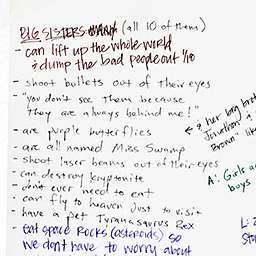 BIG SISTERS (all 10 of them)
- can lift up the whole world
& dump the bad people out
- shoot bullets out of their eyes
- "you don't see them because
they are always behind me!"
- are purple butterflies
- are all named Miss Swamp
- shoot laser beams out of their eyes
- can destroy kryptonite
- don't ever need to eat
- can fly to heaven just to visit
- have a pet Tyranasaurus Rex
- eat space rocks (asteroids) so
we don't have to worry about
& her big brot
Jonathon &
Brown" lik
A: Girls a
buys
L: